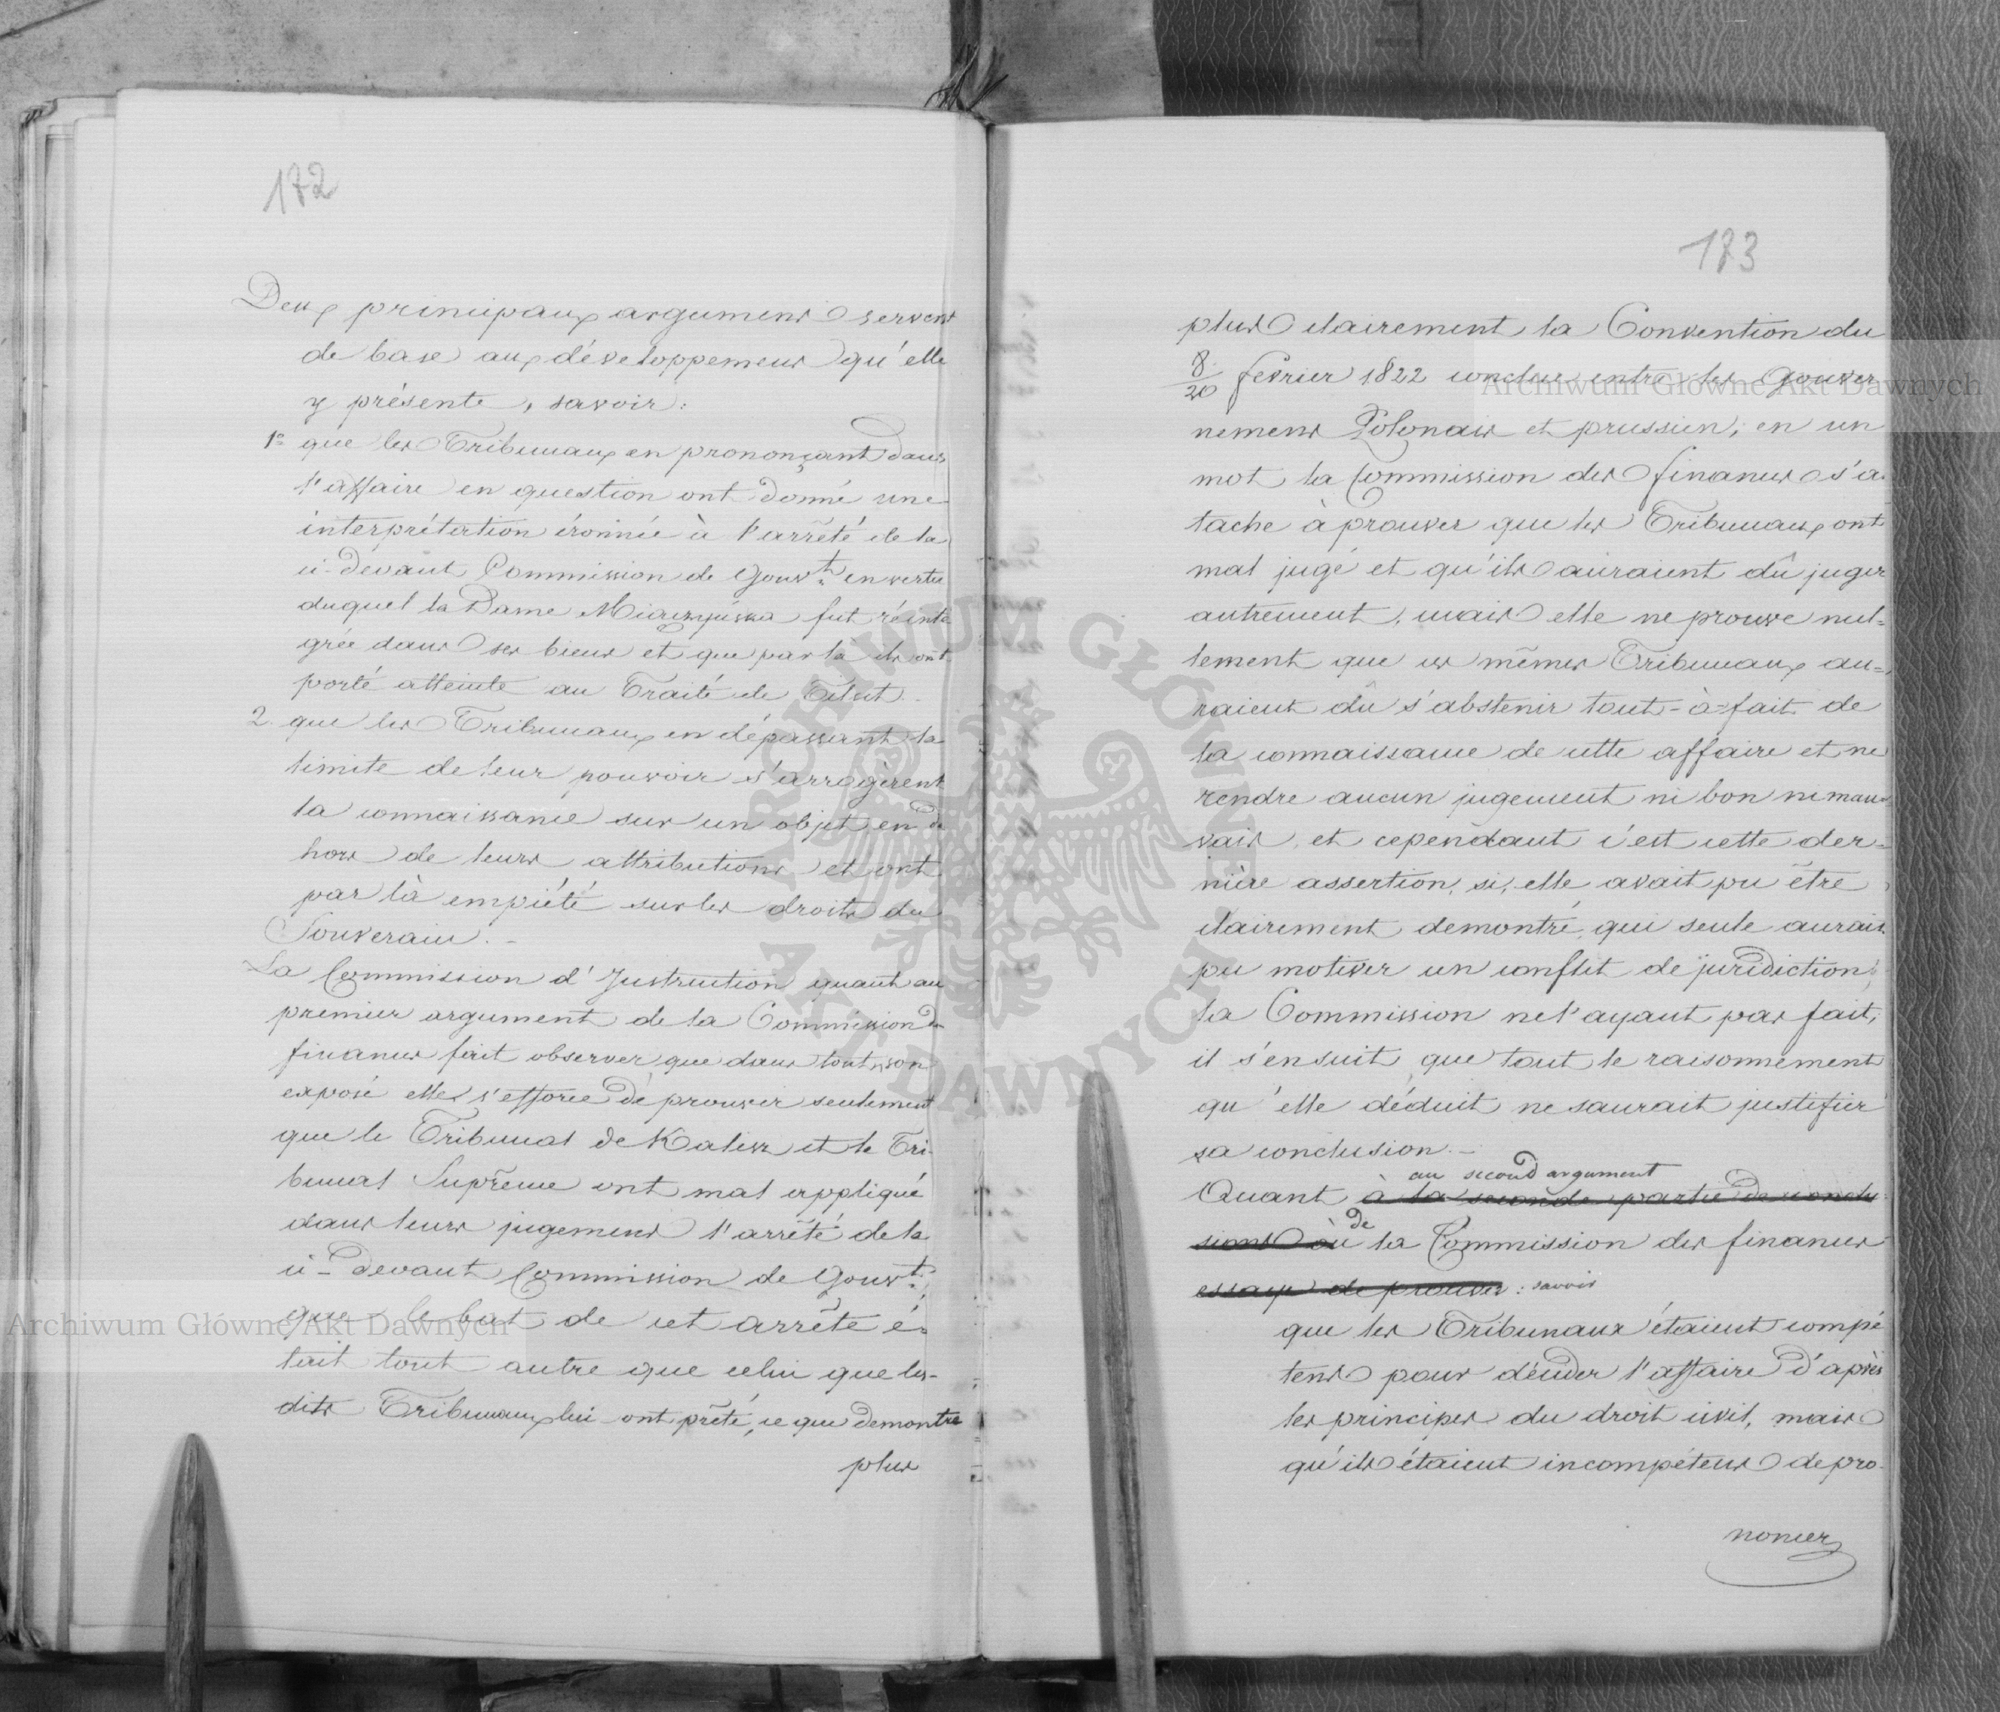 172
Deux principaux argumens servent
de base aux développemens qu'elle
y présente, savoir:
1º que les Tribunaux en prononçant dans
l'affaire en question ont donné une
interprétation éronnée à l'arrêté de la
ci-devant Commission de Gouvt. en vertu
duquel la Dame fut réinté
grée dans ses biens et que par là ils ont
porté atteinte au Traité de Tilsit.
2. que les Tribunaux en dépassant la
limite de leur pouvoir s'arrogèrent
la connaissance sur un objet en de
hors de leurs attributions et ont
par là empiété sur les droits du
Souverain. -
La Commission d'Instruction quant au
premier argument de la Commission de
finances fait observer que dans tout son
exposé elle s'efforce de prouver seulement
que le Tribunal de Kalisz et le Tri-
bunal Suprême ont mal appliqué
dans leurs jugemens l'arrêté de la
ci-devant Commission de Gouvt.,
que le but de cet arrêté é-
tait tout autre que celui que les-
dits Tribunaux lui ont prêté, ce que demontre
plus
173
plus clairement la Convention du
8/20 fevrier 1822 conclue entre les Gouver
nemens Polonais et prussien; en un
mot la Commission des finances s'a-
tache à prouver que les Tribunaux ont
mal jugé et qu'ils auraient dû juger
autrement, mais elle ne prouve nul=
lement que ces mêmes Tribunaux au=
raient dû s'abstenir tout-à-fait de
la connaissance de cette affaire et ne
rendre aucun jugement ni bon ni mau-
vais, et cependant c'est cette der=
nière assertion, si, elle avait pu être
clairement demontré, qui seule aurait
pu motiver un conflit de juridiction;
la Commission ne l'ayant pas fait,
il s'ensuit que tout le raisonnement
qu'elle déduit ne saurait justifier
sa conclusion. -
au second argument
Quant à la seconde partie de conclu
de
sions où la Commission des finances
essaye de prouver : savoir
que les Tribunaux étaient compé
tens pour décider l'affaire d'après
les principes du droit civil, mais
qu'ils étaient incompétens de pro-
noncer
Archiwum Główne Akt Dawnych
Archiwum Główne Akt Dawnych
ARCHIWUM GŁÓWNE AKT DAWNYCH